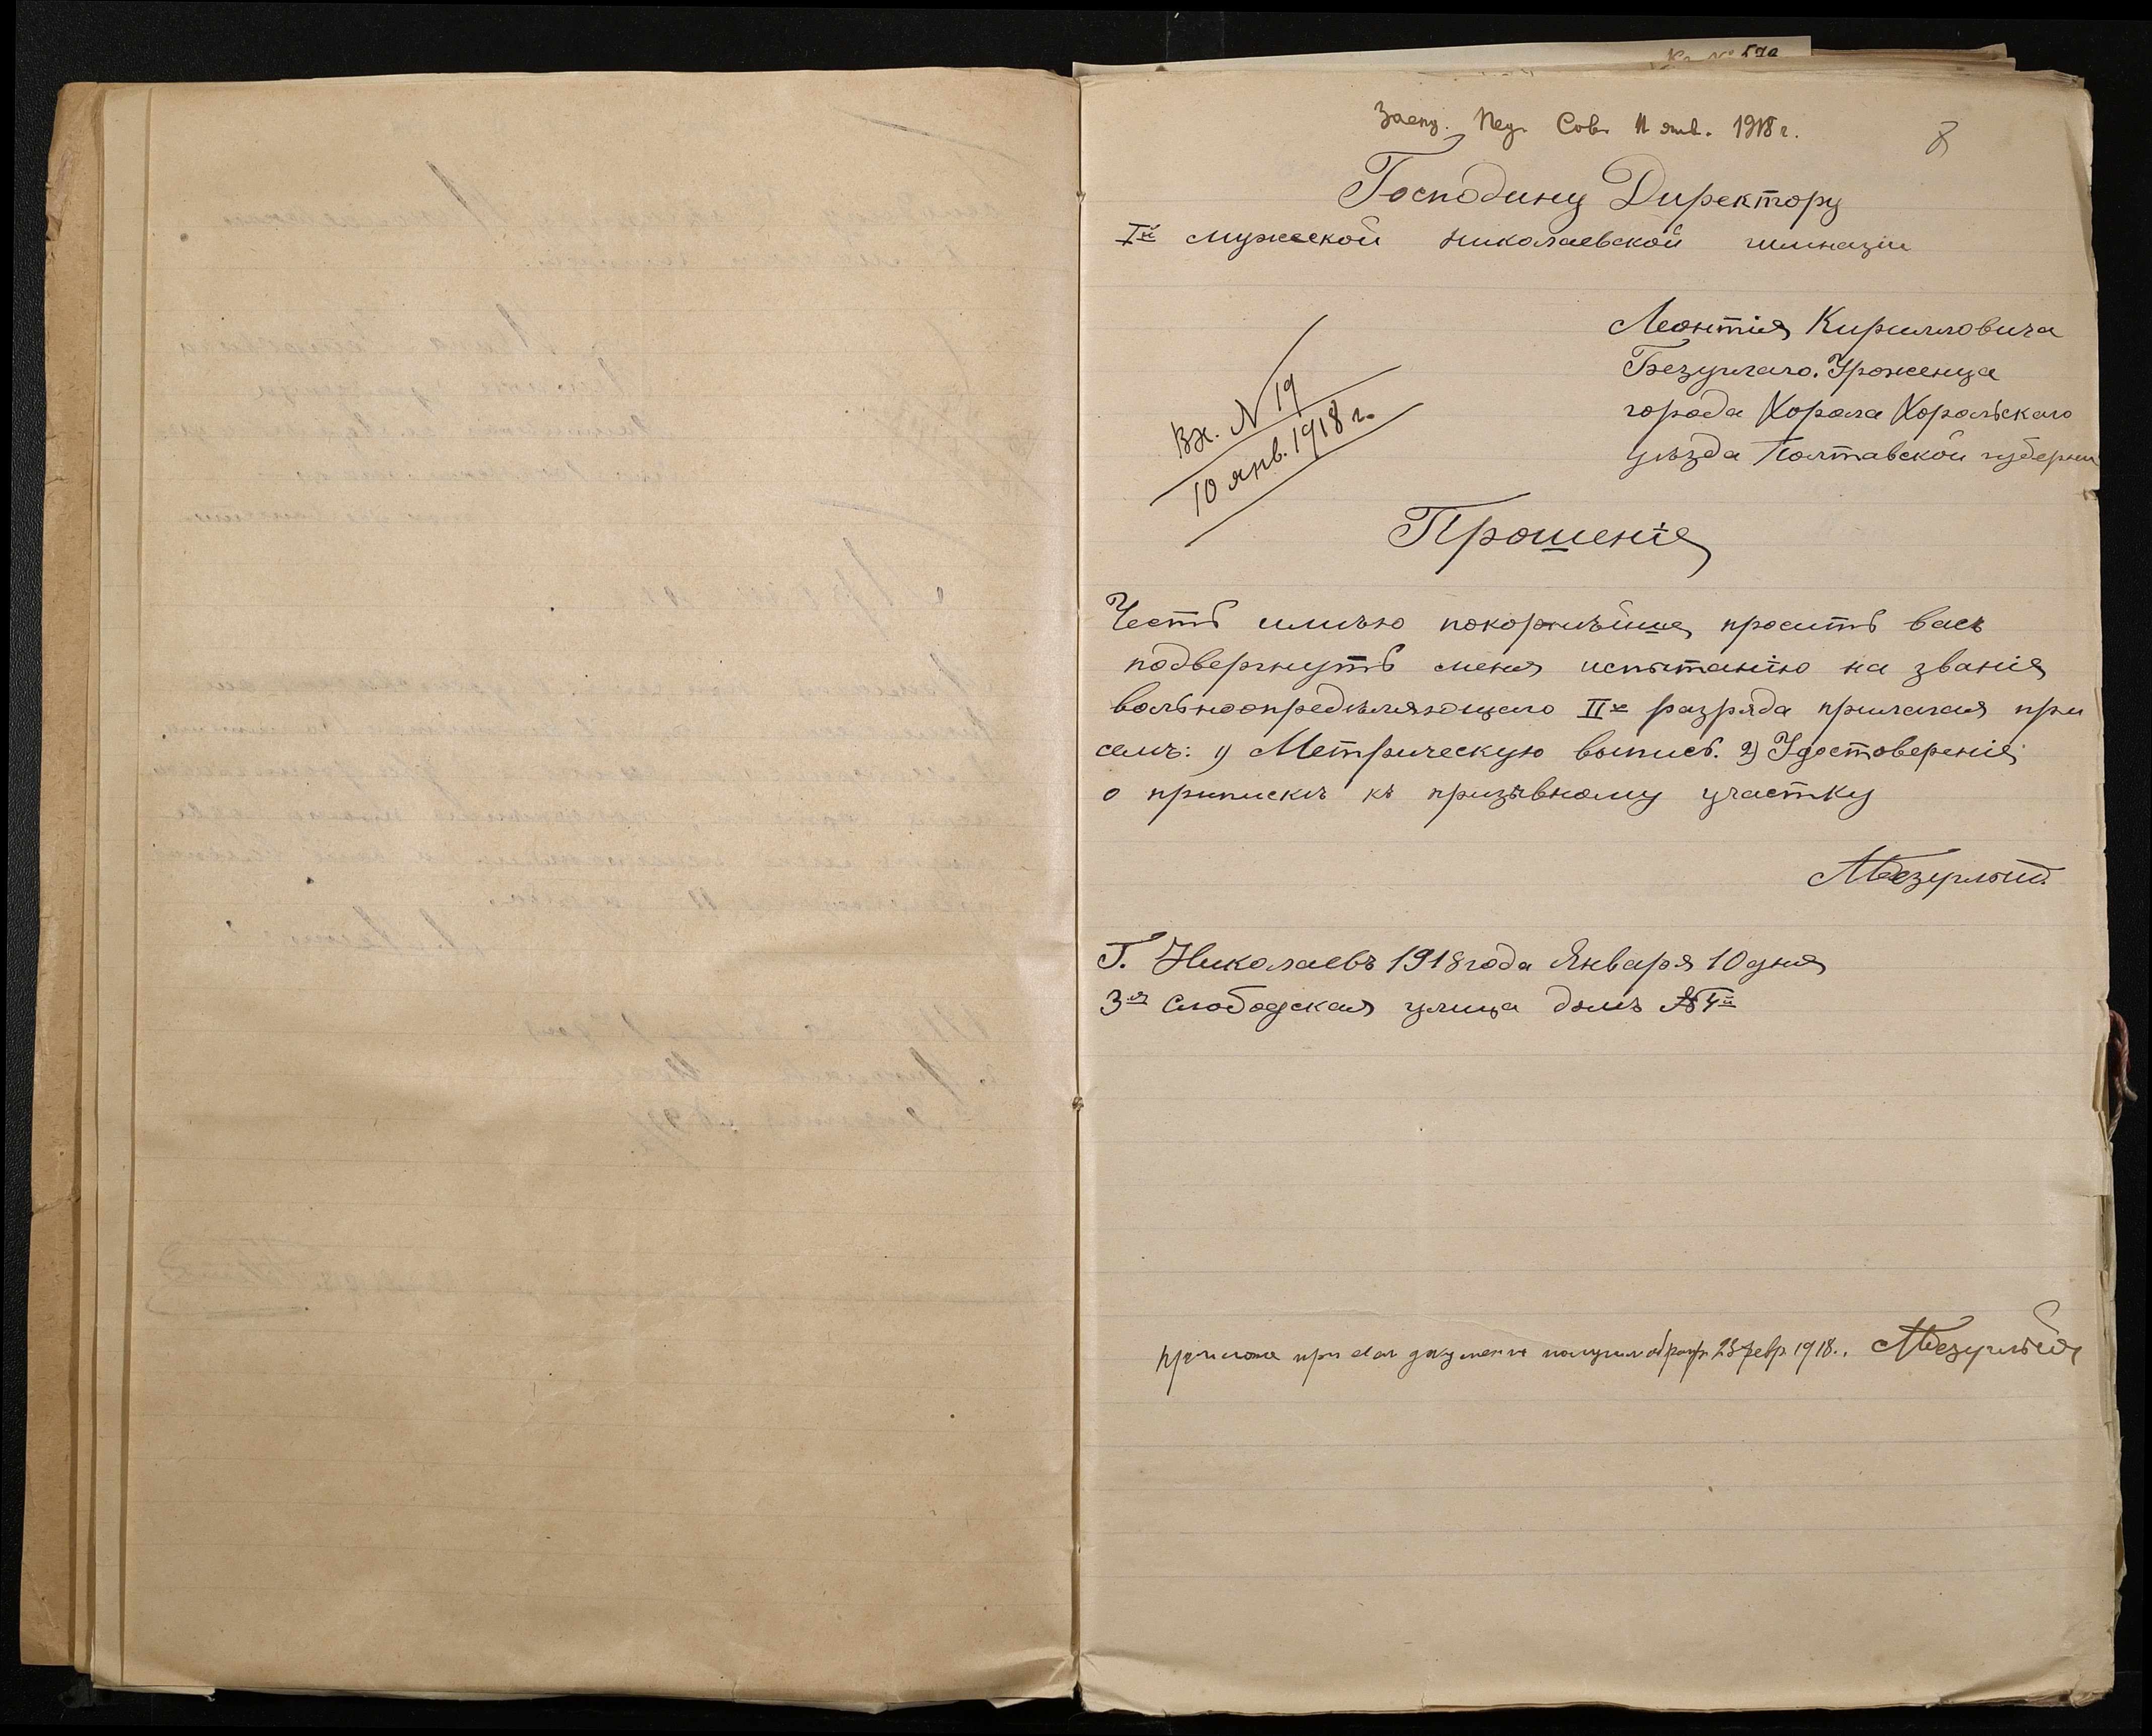 Засѣд. Пед. Сов. 11 янв. 1918 г.
8
Господину Директору
Iй мужеской николаевской гимназіи
Леонтія Кирилловича
Безуглаго. Уроженца
города Хорола Хорольскаго
уѣзда Полтавской губерни
Вх. N 19
10 янв. 1918 г.
Прошенія
Честь имѣю покорнѣйше просить васъ
подвергнуть меня испытанію на званія
вольноопредѣляющаго IIго разряда прилагая при
семъ: 1) Метрическую выпись. 2) Удостоверенія
о припискѣ къ призывному участку
ЛБезуглый
Г. Николаевъ 1918 года Января 10 дня
3я Слободская улица домъ № 4й
при сем документы получил обратно 28 февр. 1918. ЛБезуглый